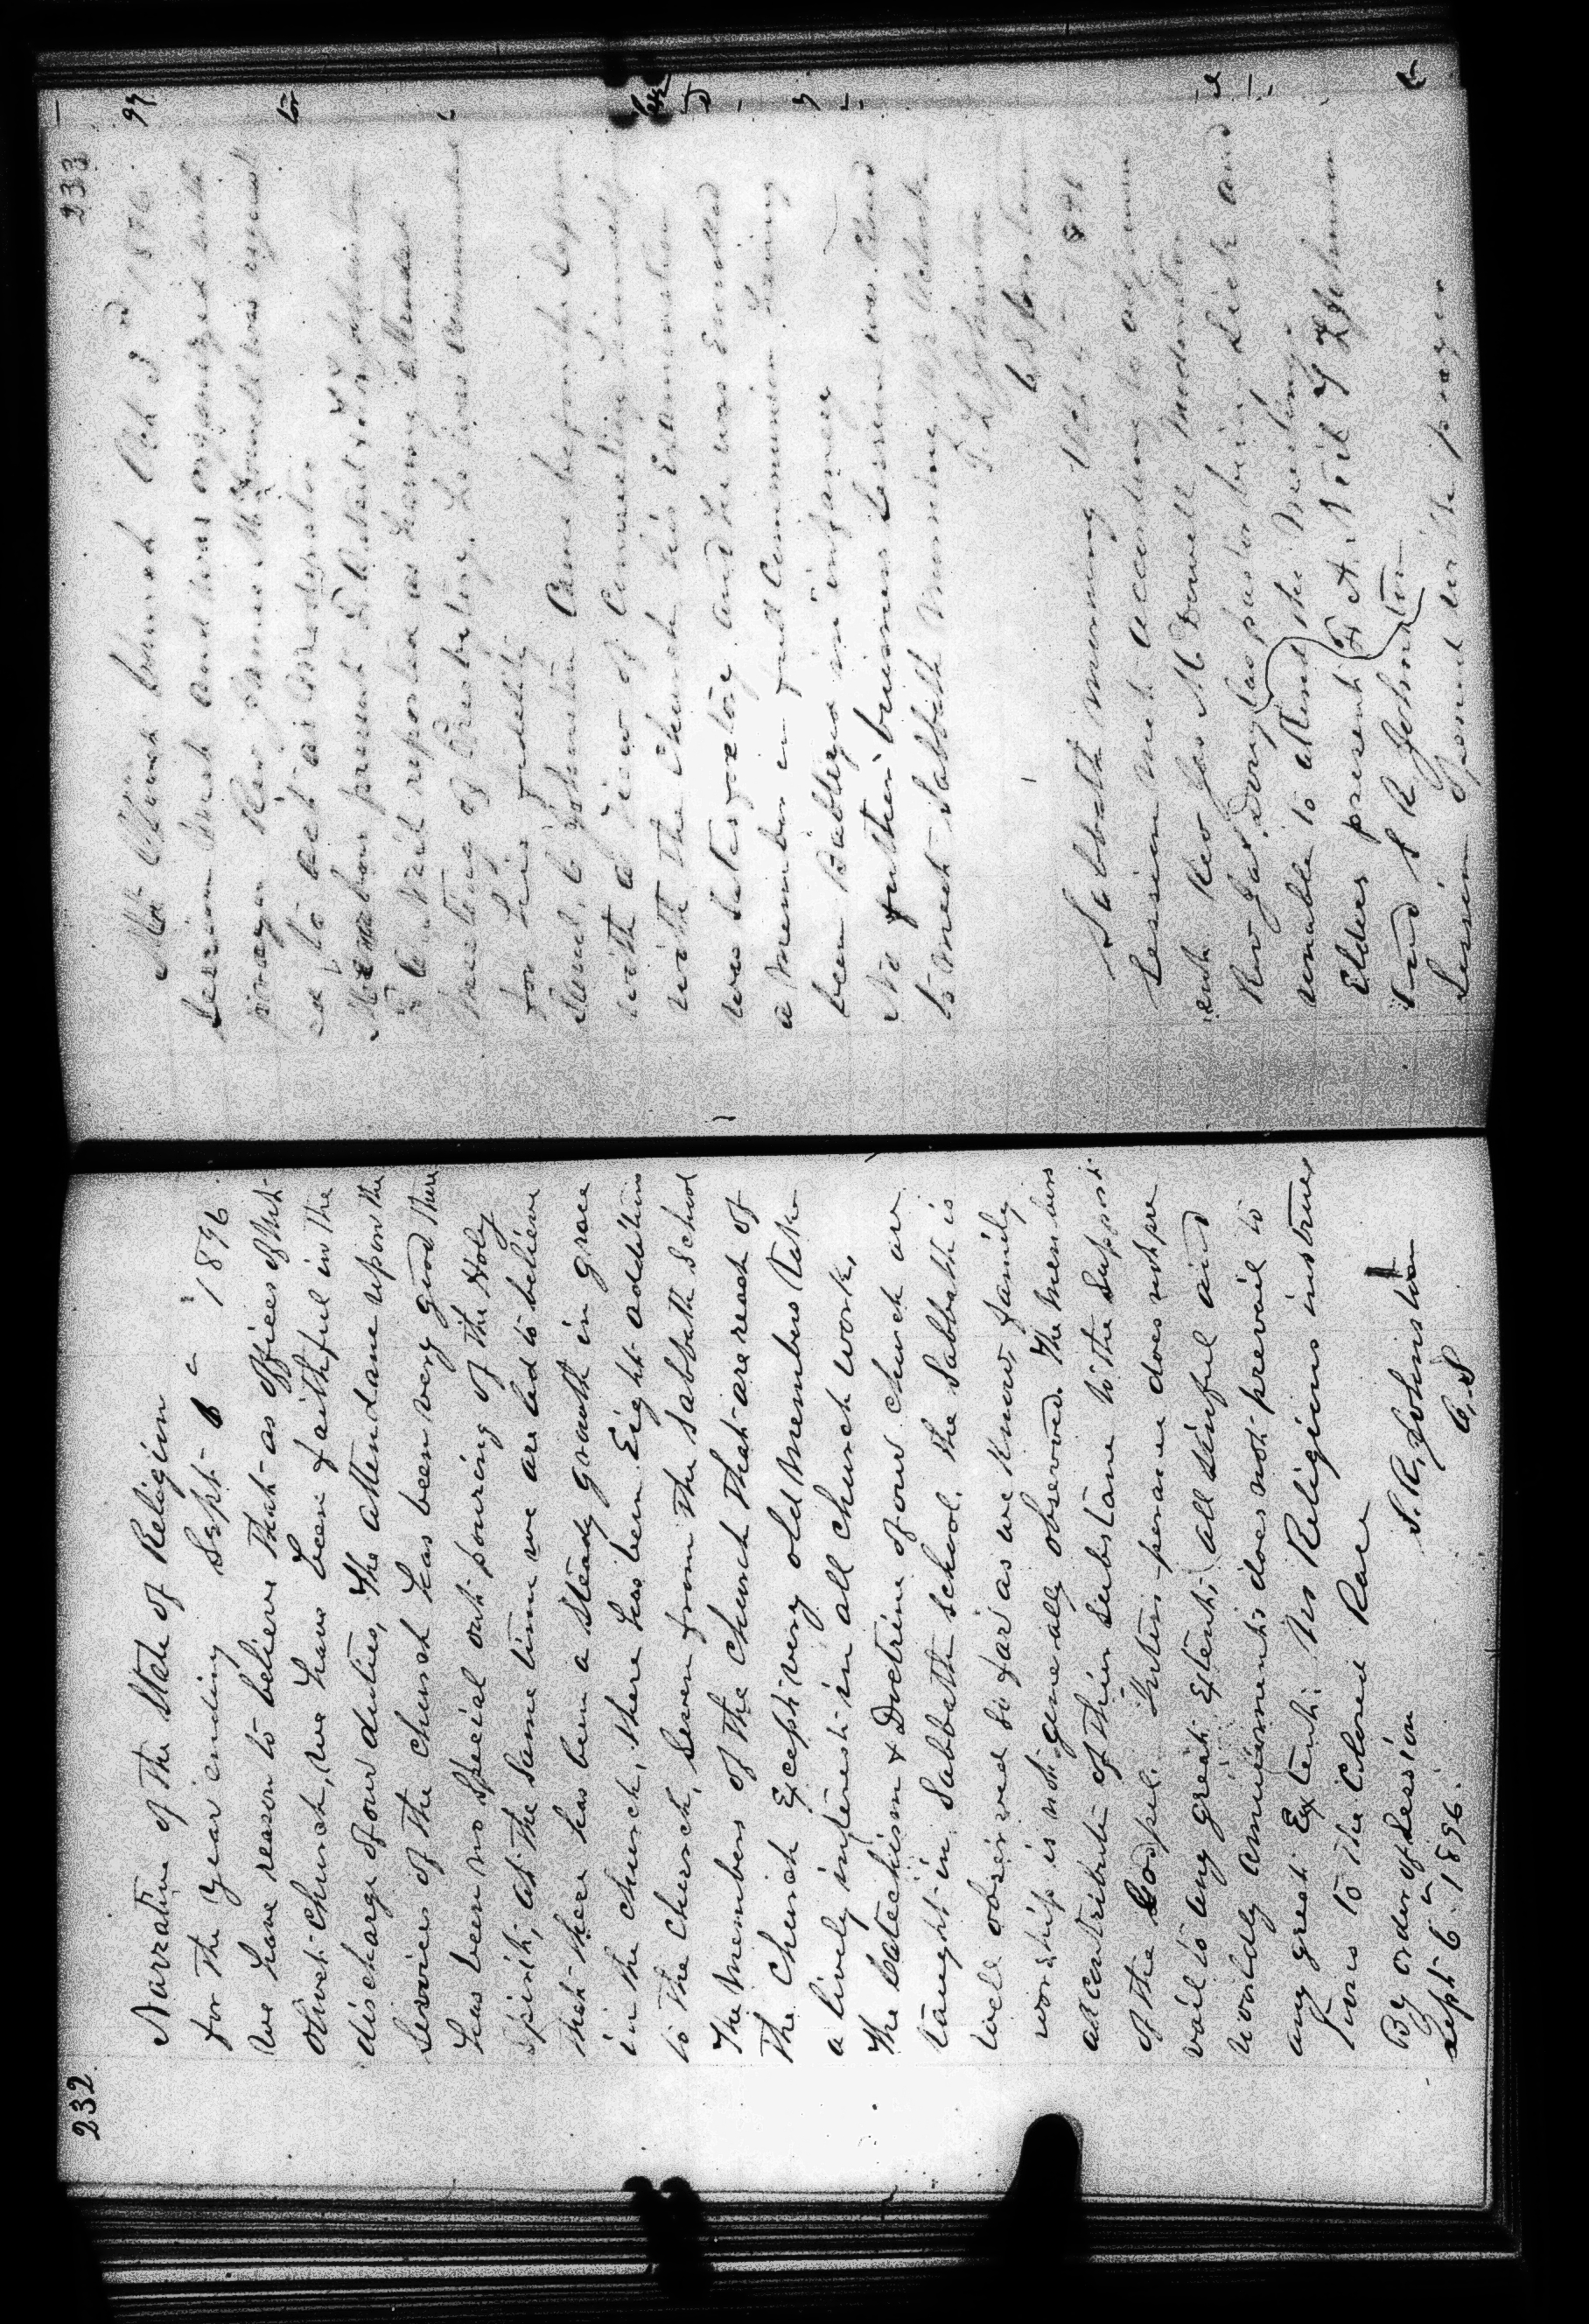 232
Narrative of the State of Religion
for the year ending Sept 6 " 1896
We have reason to believe that as officers of Mt
Olivet Church, we have been faithful in the
discharge of our duties, The attendance upon the
Services of the Church has been very good There
has been no Special out pouring of the Holy
Spirit, at the Same time we are led to believe
that there has been a Steady growth in grace
in the church, there has been Eight additions
to the Church, Seven from the Sabbath School
The Members of the Church that are reach of
The Church Except very old members take
a lively interest in all Church work,
The Catechism & Doctrine of our Church are
taught in Sabbath School. The Sabbath is
well observed So far as we know, family
worship is not generally observed. The Members
all contribute of their Substance to the Support
of the Gospel. Intem perance does not pre
vail to any great Extent, all Sinful and
worldly amusements does not prevail to
any great Extent. No Religious instruc
tions to the Colored Race
By order of Session S. R. Johnston
Sept 6 " 1896. C, S
233
Mt Olivet Church Oct 3 rd 1896
Session met and was organized with
prayer Rev James McDowell was
ed to act as Moderator
Members present
S C Neil reported as having attended
Meeting of Presbytery. he was
for his fidelity
Saml. C Johnston Came before the Session
with a View of Connecting himself
with the Church his Examination
was Satisfactory and he was Enrolled
a Member in full Communion having
been Babtized in infancy
No further business Session was
to meet Sabbath morning
S R Johnston
C S
Sabbath morning Oct 4 " 1896
Session met according to adjourn
ment Rev Jas McDowell Moderator
Rev Jas Douglas pastor being Sick and
unable to attend the Meeting.
Elders present A. Neil
and S R Johnston
Session Opened with prayer